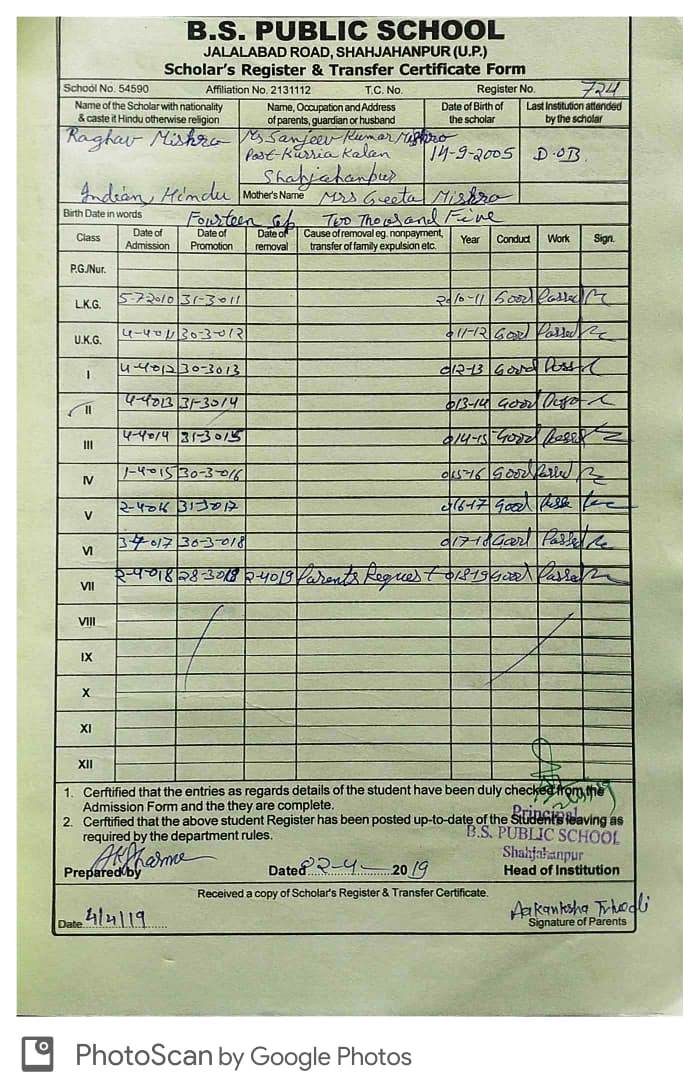 B.S. PUBLIC SCHOOL
JALALABAD ROAD, SHAHJAHANPUR (U.P.)
Scholar's Register & Transfer Certificate Form
School No. 54590 Affiliation No. 2131112 T.C. No. Register No. 724
Name of the Scholar with nationality & caste it Hindu otherwise religion
Name, Occupation and Address of parents, guardian or husband
Date of Birth of the scholar
Last Institution attended by the scholar
Raghav Mishra
Mr Sanjeev Kumar Mishra
Post-Kurria Kalan
Shahjahanpur
14-9-2005
D.O.B.
Indian, Hindu Mother's Name Mrs Geeta Mishra
Birth Date in words Fourteen Sep Two Thousand Five
Class Date of Admission Date of Promotion Date of removal Cause of removal eg. nonpayment, transfer of family expulsion etc. Year Conduct Work Sign.
P.G./Nur.
L.K.G. 5-72010 31-3-011 2010-11 Good Passed
U.K.G. 4-4011 30-3-012 011-12 Good Passed
I 4-4012 30-3013 012-13 Good
II 4-4013 31-3014 013-14 Good
III 4-4014 31-3015 014-15 Good
IV 1-4015 30-3-016 015-16 Good Passed
V 2-4016 31-3017 016-17 Good
VI 3-4-017 30-3-018 017-18 Good Passed
VII 2-4-018 28-3019 2-4019 Parents Request 018-19 Good Passed
VIII
IX
X
XI
XII
1. Cerftified that the entries as regards details of the student have been duly checked from the
Admission Form and the they are complete.
2. Cerftified that the above student Register has been posted up-to-date of the Student's leaving as
required by the department rules.
Principal
B.S. PUBLIC SCHOOL
Shahjahanpur
AKSharma
Prepared by Dated 02-4- 2019 Head of Institution
Received a copy of Scholar's Register & Transfer Certificate.
Date 4/4/19
Aakanksha Trivedi
Signature of Parents
PhotoScan by Google Photos